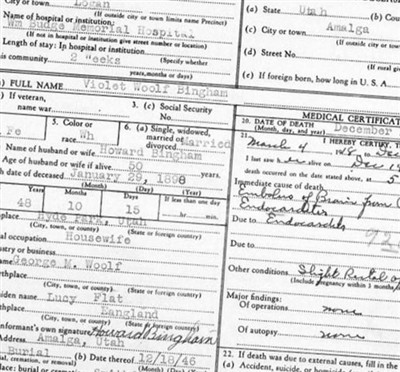 Logan
(If outside city or town limits name Precinct)
Name of hospital or institution:
Wm Budge Memorial Hospital
(If not in hospital or institution give street number or location)
Length of stay: In hospital or institution
this community 2 weeks (Specify whether
years, months or days)
(a) State Utah (b) Coun
(c) City or town Amalga
(If outside city or town
(d) Street No.
(If
(e) If foreign born, how long in U. S.
FULL NAME Violet Woolf Bingham
If veteran,
name war
3. (c) Social Security
No.
Fe
5. Color or
race Wh
6. (a) Single, widowed,
married or
divorced Married
Name of husband or wife Howard Bingham
Age of husband or wife if alive 50 years
date of deceased January 29, 1898
(Month) (Day) (Year)
Months Days If less than one day
48 10 15 hr. min.
place Hyde Park, Utah
(City, town, or county) (State or foreign country)
al occupation Housewife
ustry or business
George M. Woolf
thplace
(City, town, or county) (State or foreign country)
iden name Lucy Flat
thplace Eangland
(City, town or county) (State or foreign country)
nformant's own signature Howard Bingham
Amalga, Utah
Burial (b) Date thereof 12/18/46
ial, cremation, or removal) (Month) (Day) (Year)
MEDICAL CERTIFICAT
20. DATE OF DEATH December
(Month, day, and year)
21. I HEREBY CERTIFY, T
March 4
I last saw her alive on Dec 19
death occurred on the date stated above, at 5
Immediate cause of death
Embolus of Brain from
Endocarditis
Due to Endocarditis
Due to
92
Other conditions Slight
(Include pregnancy within 3 months
Major findings:
Of operations none
Of autopsy none
22. If death was due to external causes, fill in the
(a) Accident, suicide, or homicide